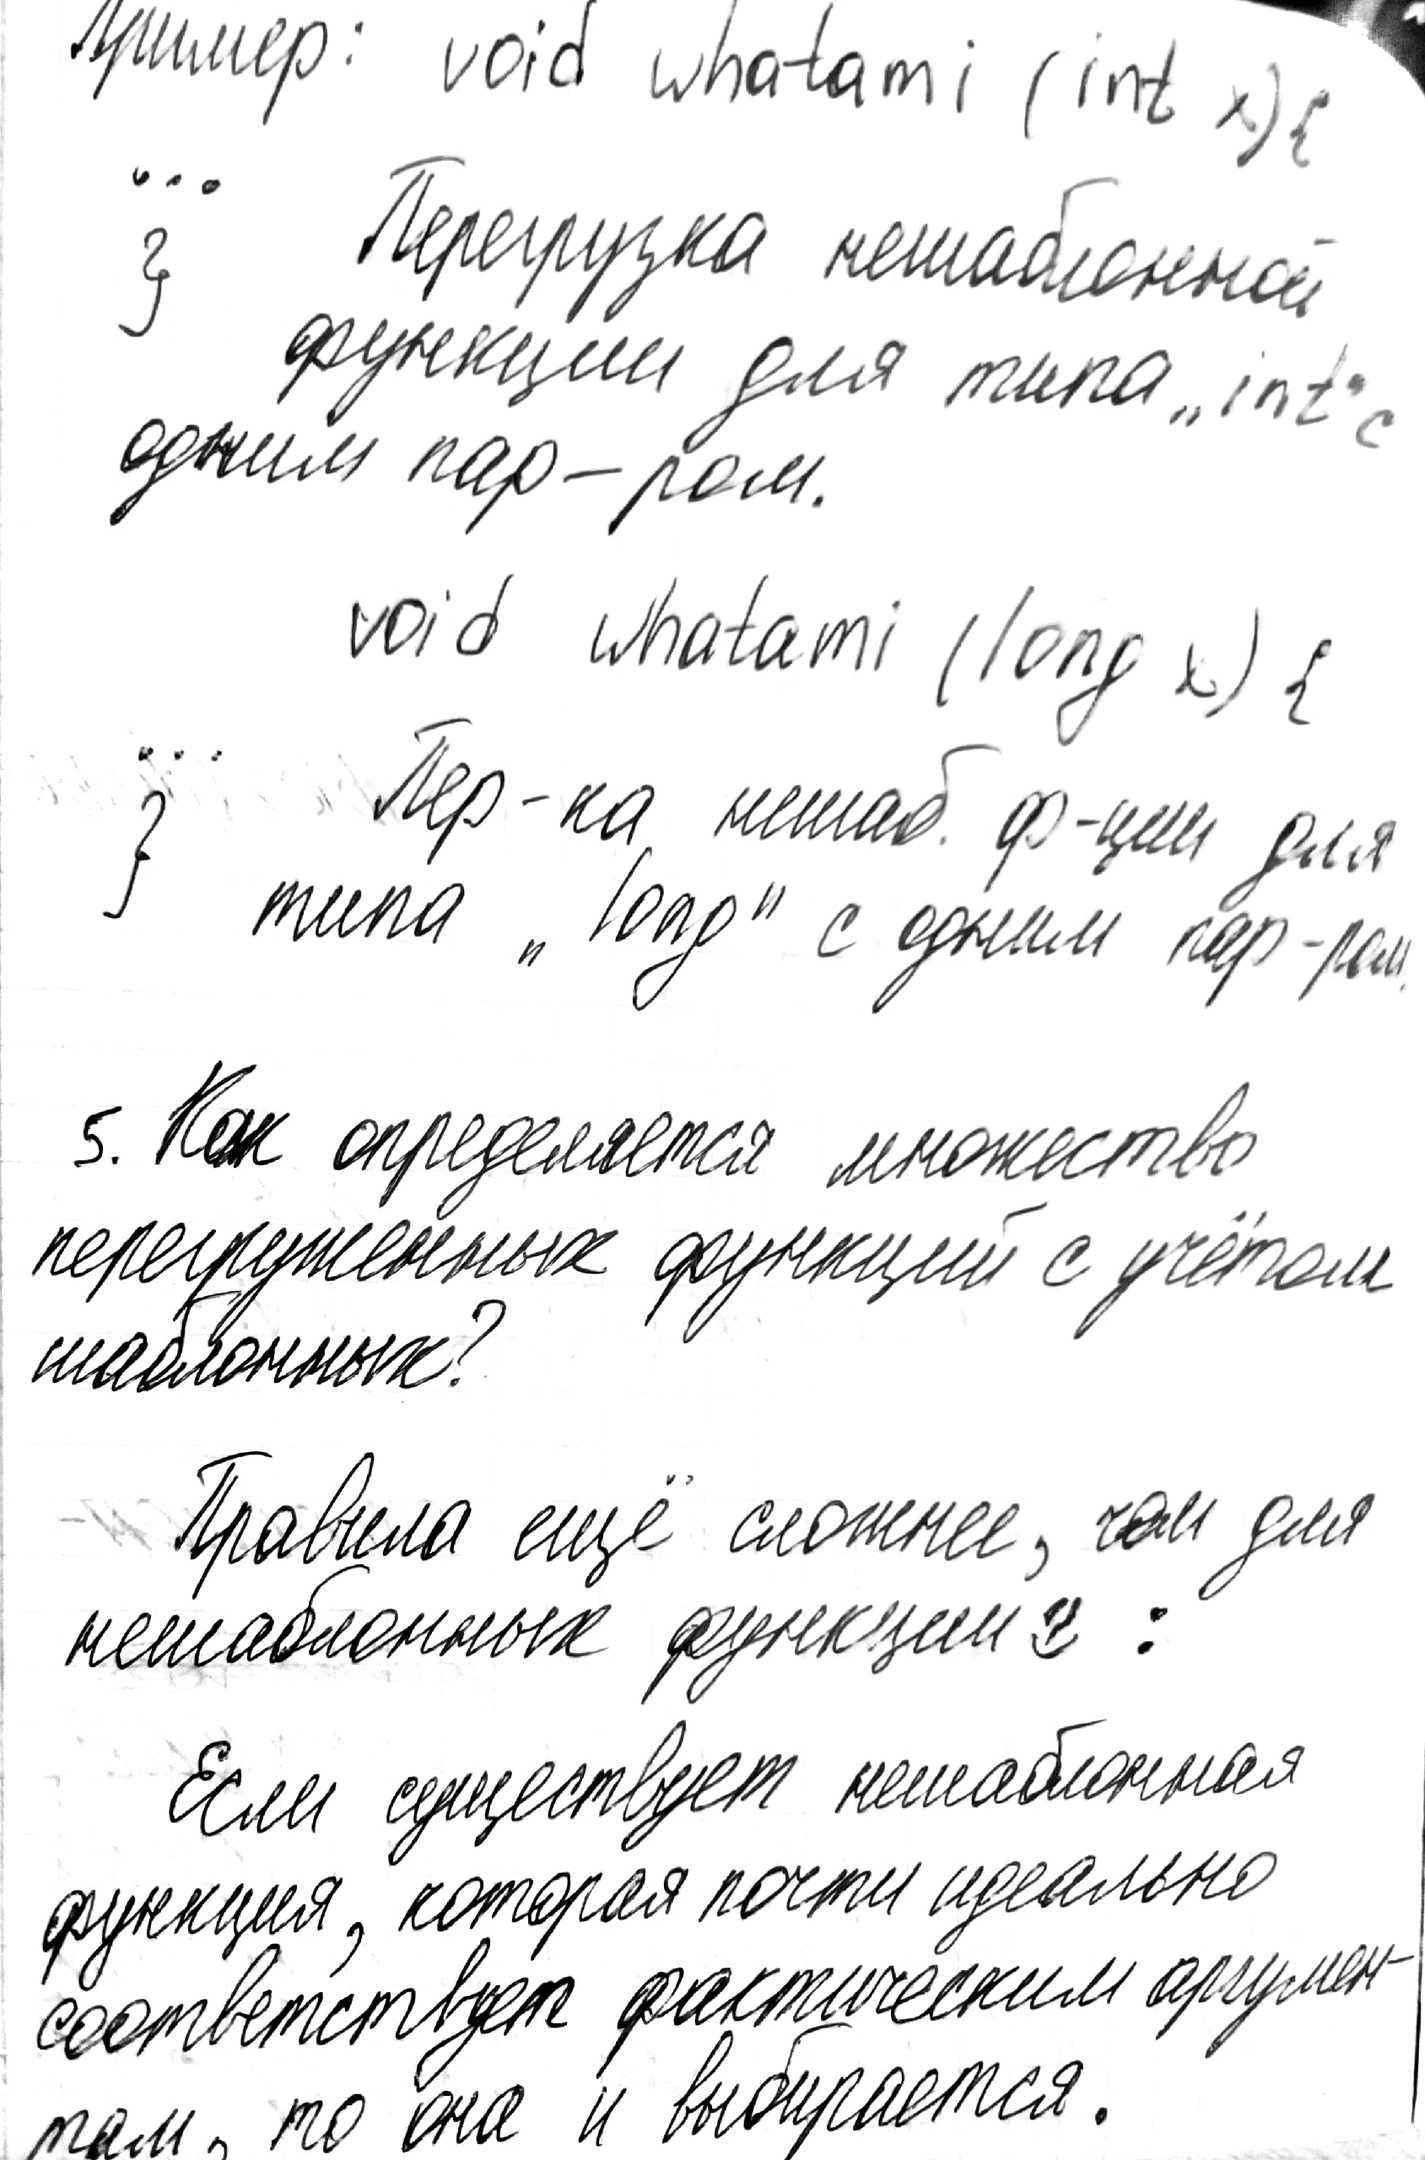 Пример: void whatami (int x) {
...
} Перегрузка нешаблонной
функции для типа „int" с
одним пар-ром.
void whatami (long x) {
...
} Пер-ка нешаб. ф-ции для
типа „long" с одним пар-ром.
5. Как определяется множество
перегруженных функций с учётом
шаблонных?
Правила ещё сложнее, чем для
нешаблонных функций :
Если существует нешаблонная
функция, которая почти идеально
соответствует фактическим аргумен-
там, то она и выбирается.